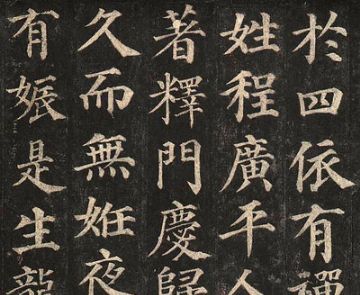 於四依有禪
姓程廣平人
著釋門慶歸
久而無姙夜
有娠是生龍